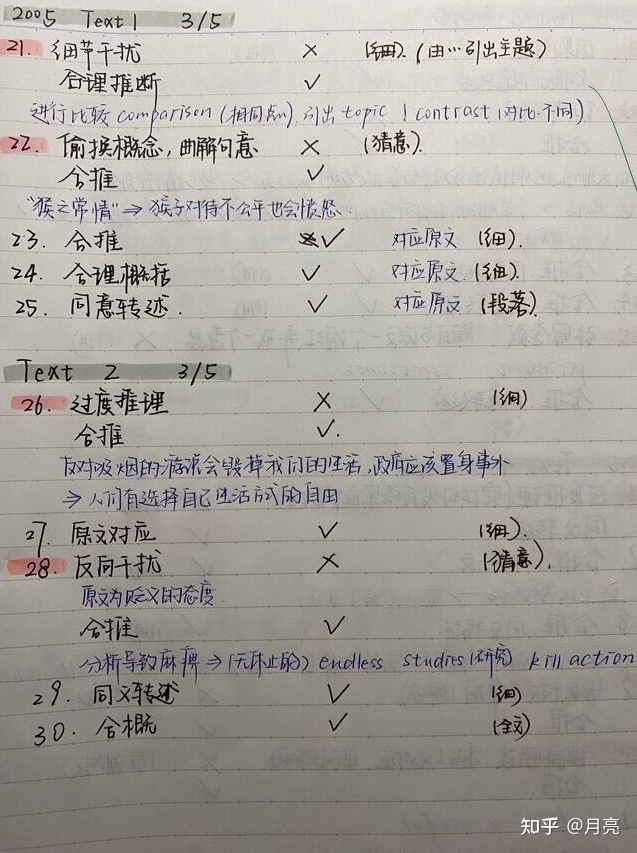 2005 Text 1 3/5
21. 细节干扰 × (细). (由…引出主题)
合理推断 ✓
进行比较 comparison (相同点), 引出 topic / contrast (对比·不同)
22. 偷换概念, 曲解句意 × (猜意).
合推 ✓
"猴之常情" ⇒ 猴子对待不公平也会愤怒.
23. 合推 ✓ 对应原文 (细).
24. 合理概括 ✓ 对应原文. (细).
25. 同意转述 ✓ 对应原文 (段落).
Text 2 3/5
26. 过度推理 × (细)
合推 ✓.
反对吸烟的游说会毁掉我们的生活, 政府应该置身事外
⇒ 人们有选择自己生活方式的自由
27. 原文对应 ✓ (细).
28. 反向干扰 × (猜意).
原文为贬义的态度.
合推 ✓
分析导致麻痹 ⇒ (无休止的) endless studies (研究) kill action
29. 同义转述 ✓ (细)
30. 合概 ✓ (全文)
知乎 @月亮